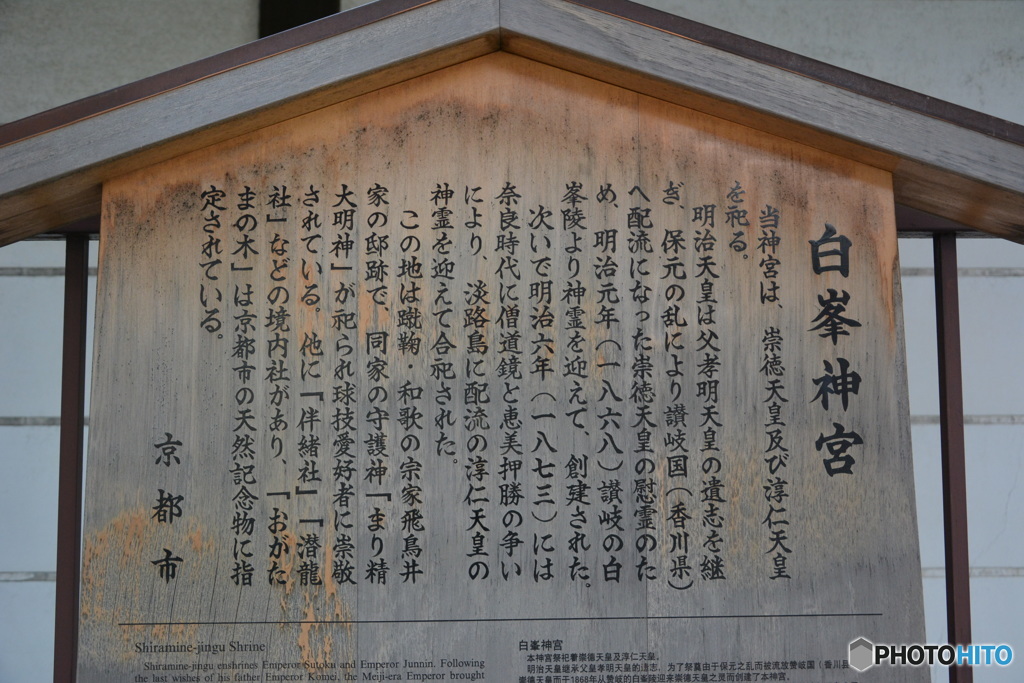 白峯神宮
当神宮は、崇徳天皇及び淳仁天皇
を祀る。
明治天皇は父孝明天皇の遺志を継
ぎ、保元の乱により讃岐国（香川県）
へ配流になった崇徳天皇の慰霊のた
め、明治元年（一八六八）讃岐の白
峯陵より神霊を迎えて、創建された。
次いで明治六年（一八七三）には
奈良時代に僧道鏡と恵美押勝の争い
により、淡路島に配流の淳仁天皇の
神霊を迎えて合祀された。
この地は蹴鞠・和歌の宗家飛鳥井
家の邸跡で、同家の守護神「まり精
大明神」が祀られ球技愛好者に崇敬
されている。他に「伴緒社」「潜龍
社」などの境内社があり、「おがた
まの木」は京都市の天然記念物に指
定されている。
京都市
Shiramine-jingu Shrine
Shiramine-jingu enshrines Emperor Sutoku and Emperor Junnin. Following
the last wishes of his father Emperor Komei, the Meiji-era Emperor brought
白峯神宫
本神宫祭祀着崇德天皇及淳仁天皇。
明治天皇继承父皇孝明天皇的遗志，为了祭奠由于保元之乱而被流放赞岐国（香川县
崇德天皇而于1868年从赞岐的白峯陵迎来崇德天皇之灵而创建了本神宫。
PHOTOHITO